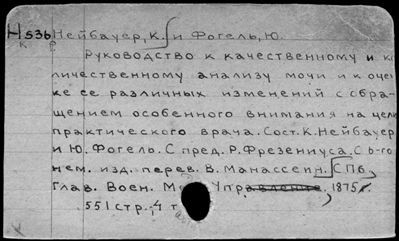 Н 536 Нейбауер, К. и Фогель, Ю.
к
Руководство к качественному и ко
личественному анализу мочи и к оцен
ке ее различных изменений с обра-
щением особенного внимания на цели
практического врача. Сост. К. Нейбауер
и Ю. Фогель. С пред. Р. Фрезениуса. С 6-го
нем. изд. перев. В. Манассеин. СПб.
Глав. Воен. Управление. 1875.
551 стр., 4 т